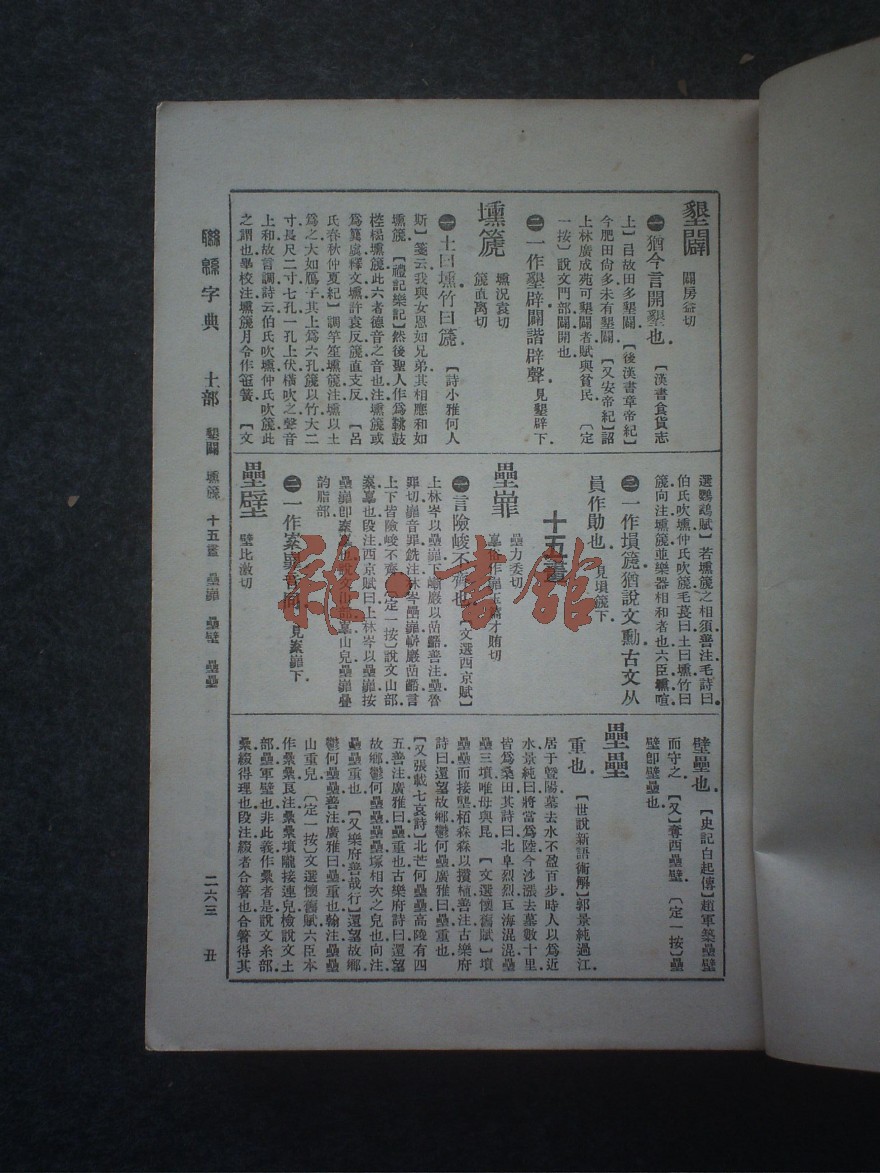 墾闢
闢房益切
㊀猶今言開墾也 〔漢書食貨志
上〕㠯故田多墾闢 〔後漢書章帝紀〕
今肥田尙多未有墾闢 〔又安帝紀〕詔
上林廣成苑可墾闢者賦與貧民 〔定
一按〕說文門部闢開也
㊁一作墾辟闢諧辟聲 見墾辟下
壎篪
壎況袁切
篪直离切
㊀土曰壎竹曰篪 〔詩小雅何人
斯〕箋云我與女恩如兄弟其相應和如
壎篪 〔禮記樂記〕然後聖人作爲鞉鼓
椌楬壎篪此六者德音之音也注壎篪或
爲簨虡釋文壎許袁反篪直支反 〔呂
氏春秋仲夏紀〕調竽笙壎篪注壎以土
爲之大如鴈子其上爲六孔篪以竹大二
寸長尺二寸七孔一孔上伏橫吹之聲音
上和故言調詩云伯氏吹壎仲氏吹篪此
之謂也畢校注壎篪月令作竾簧 〔文
選鸚鵡賦〕若壎篪之相須善注毛詩曰
伯氏吹壎仲氏吹篪毛萇曰土曰壎竹曰
篪向注壎篪並樂器相和者也六臣壎喧
㊁一作塤篪猶說文勳古文从
員作勛也 見塤篪下
十五畫
壘嶵
壘力委切
㊀言險峻不齊也 〔文選西京賦〕
上林岑以壘嶵下嶃巖以嵒齬善注壘魯
罪切嶵音罪銑注林岑壘嶵嶃巖嵒齬言
上下皆險峻不齊 〔定一按〕說文山部
也段注西京賦曰上林岑以壘嶵按
韵脂部
見嶵下
壘壁
壁比激切
壁壘也 〔史記白起傳〕趙軍築壘壁
而守之 〔又〕奪西壘壁 〔定一按〕壘
壁卽壁壘也
壘壘
重也 〔世說新語術解〕郭景純過江
居于曁陽墓去水不盈百步時人以爲近
水景純曰將當爲陸今沙漲去墓數十里
皆爲桑田其詩曰北阜烈烈巨海混混壘
壘三墳唯母與昆 〔文選懷舊賦〕墳
壘壘而接壟栢森森以攢植善注古樂府
詩曰還望故鄕鬱何壘壘廣雅曰壘重也
〔又張載七哀詩〕北芒何壘壘高陵有四
五善注廣雅曰壘重也古樂府詩曰還望
故鄕鬱何壘壘壘壘塚相次之皃也向注
壘壘重也 〔又樂府善哉行〕還望故鄕
鬱何壘壘善注廣雅曰壘重也翰注壘壘
山重皃 〔定一按〕文選懷舊賦六臣本
作纍纍良注纍纍墳隴接連皃檢說文土
部壘軍壁也非此義作纍者是說文糸部
纍綴得理也段注綴者合箸也合箸得其
聯緜字典 土部 墾闢 壎篪 十五畫 壘嶵 壘壁 壘壘 二六三 丑
雜·書館